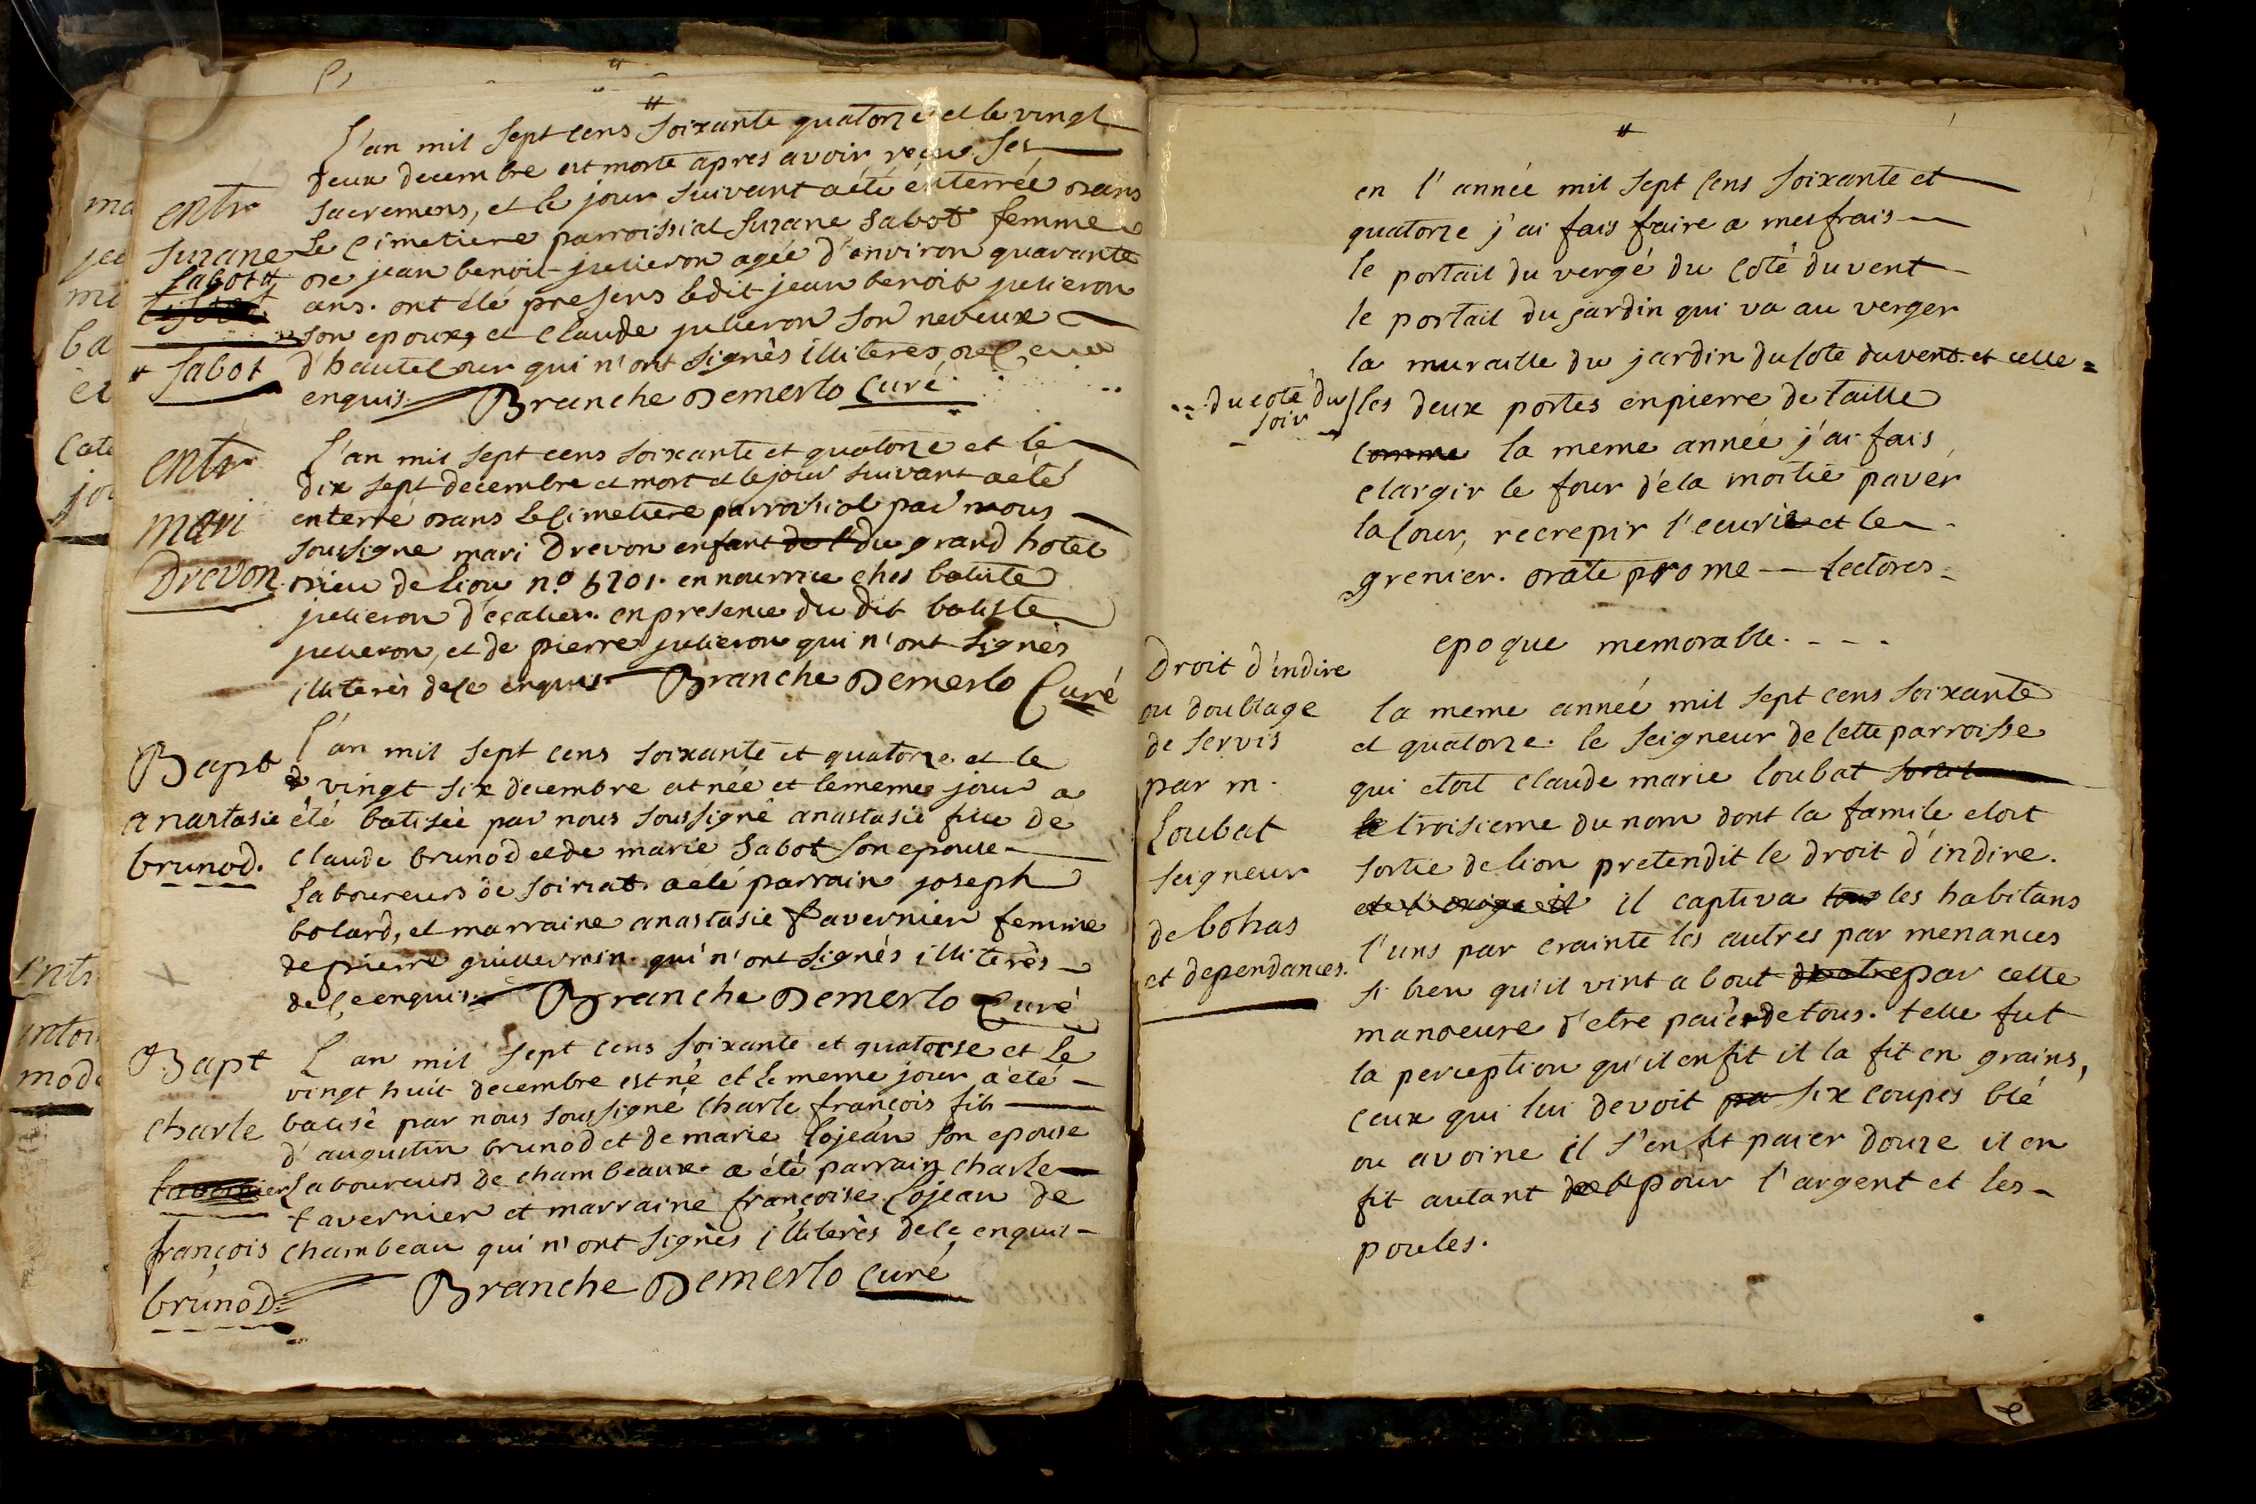 L'an mil sept cens soixante quatorze et le vingt
deux decembre est morte apres avoir reçu ses
sacremens, et le jour suivant a été enterrée dans
le cimetiere parroissial suzane sabot femme
de jean benoit julieron agée d'environ quarante
ans. ont été presens ledit jean benoit julieron
son epoux, et claude julieron son neveux
d'hautecour qui n'ont signès illiteres de ce
enquis. Branche Demerlo Curé
entr
suzane
sabot
sabot
L'an mil sept cens soixante et quatorze et le
dix sept decembre et mort et le jour suivant a eté
enterré dans le cimetiere parroissial par nous
soussigne mari Drevon enfant du grand hotel
dieu de lion n.º 5701. en nourrice ches batiste
julieron d'eçalier. en presence du dit batiste
julieron, et de pierre julieron qui n'ont signès
illiterès de ce enquis. Branche Demerlo Curé
entr
mari
Drevon.
L'an mil sept cens soixante et quatorze et le
vingt six decembre et née et le meme jour a
été batisée par nous soussigné anastasie fille de
claude brunod et de marie sabot son epouse
laboureurs de soiriat. a eté parrain joseph
bolard, et marraine anastasie tavernier femme
de pierre guillermin qui n'ont signés illiterès
de ce enquis. Branche Demerlo Curé
Bapt
anastasie
brunod.
L'an mil sept cens soixante et quatorse et le
vingt huit decembre est né et le meme jour a eté
batisé par nous soussigné charle françois fils
d'augustin brunod et de marie lojean son epouse
laboureurs de chambeaux. a été parrain charle
tavernier et marraine françoise lojean de
chambeau qui n'ont signès illiterès de ce enquis
Branche Demerlo curé
Bapt
charle
tavernier
françois
brunod
en l'année mil sept cens soixante et
quatorze j'ai fais faire a mes frais
le portail du vergé du coté du vent
le portail du jardin qui va au verger
la muraille du jardin du cote du vent et celle =
du coté du
soir
les deux portes en pierre de taille
comme la meme année j'ai fais
elargir le four de la moitié paver
la cour, recrepir l'ecurie et le
grenier. orate pro me lectores
epoque memorable.
Droit d'indire
ou doublage
de servis
par m.
Loubat
seigneur
de bohas
et dependances.
la meme année mil sept cens soixante
et quatorze. le seigneur de cette parroisse
qui etoit claude marie loubat
le troisieme du nom dont la famile etoit
sortie de lion pretendit le droit d'indire.
il captiva tous les habitans
l'uns par crainte les autres par menances
si bien qu'il vint a bout par cette
manoeure d'etre paiér de tous. telle fut
la perception qu'il en fit il la fit en grains,
ceux qui lui devoit pa six coupes blé
ou avoine il s'en fit paier douze il en
fit autant pour l'argent et les
poules.